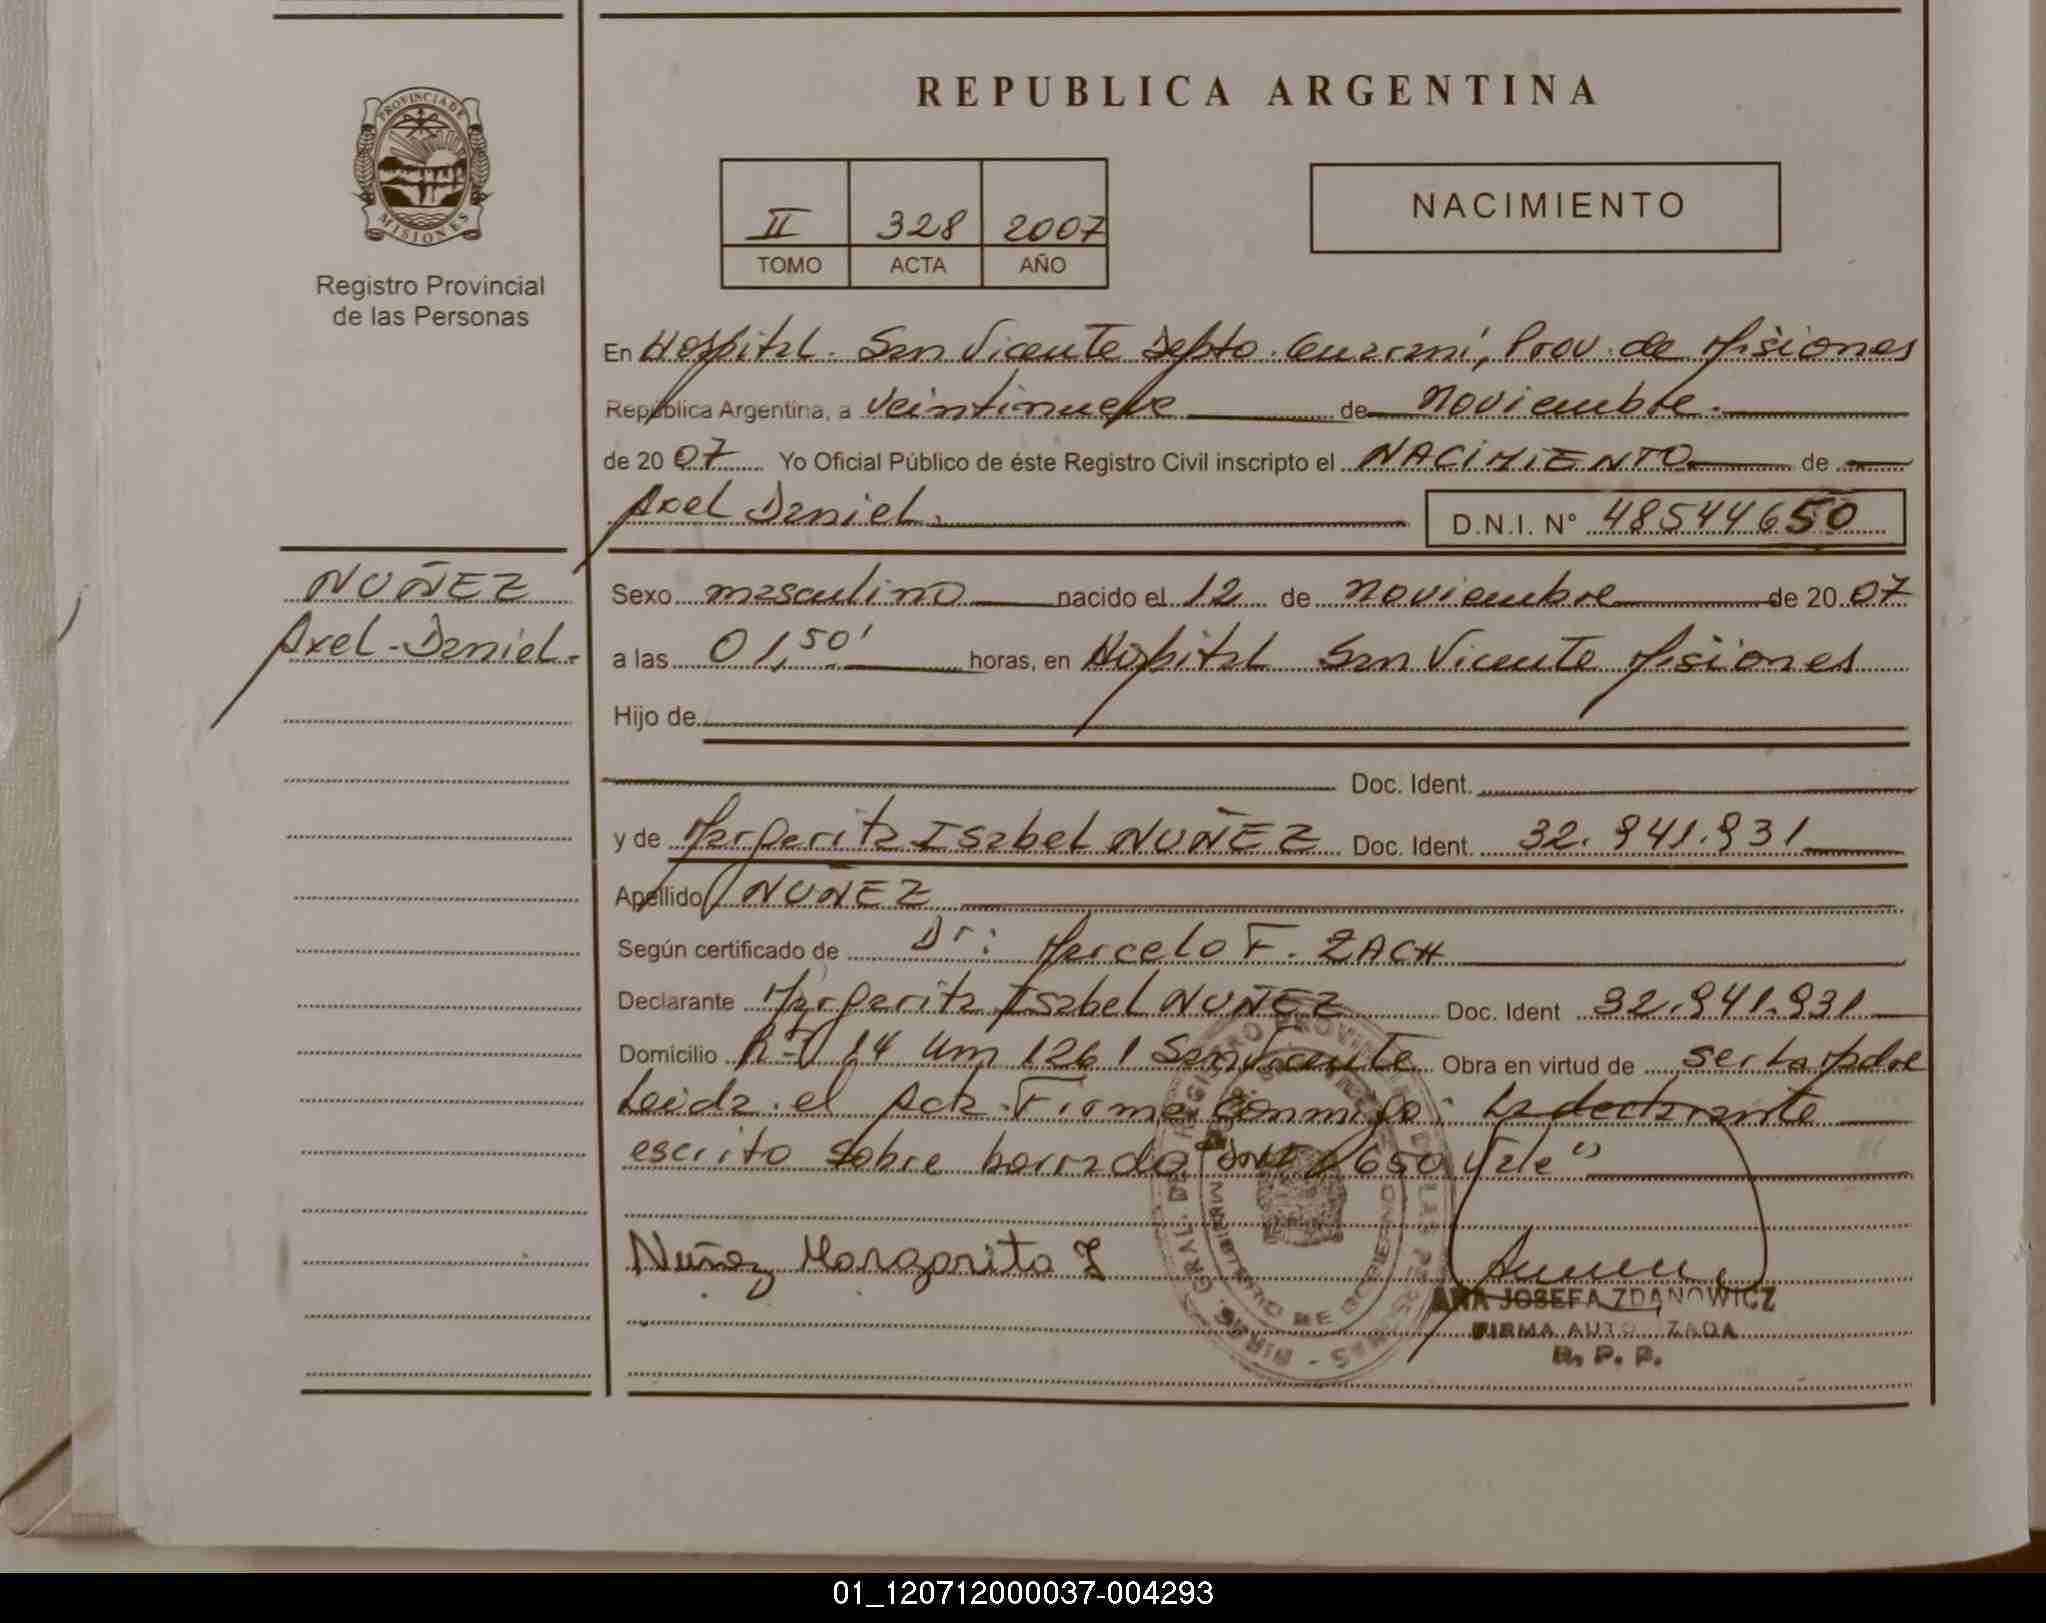 REPUBLICA ARGENTINA
PROVINCIA DE
MISIONES
Registro Provincial
de las Personas
II 328 2007
TOMO ACTA AÑO
NACIMIENTO
En Hospital. San Vicente Depto. Guaraní, Prov. de Misiones
República Argentina, a veintinueve de Noviembre.
de 20 07 Yo Oficial Público de éste Registro Civil inscripto el NACIMIENTO de
Axel Daniel. D.N.I. N° 48544650
NUÑEZ
Axel-Daniel-
Sexo masculino nacido el 12 de noviembre de 20 07
a las 01,50' horas, en Hospital San Vicente Misiones
Hijo de
Doc. Ident.
y de Margarita Isabel NUÑEZ Doc. Ident. 32.941.931
Apellido NUÑEZ
Según certificado de Dr: Marcelo F. ZACH
Declarante Margarita Isabel NUÑEZ Doc. Ident 32.941.931
Domicilio 14 Km 1261 San Vicente Obra en virtud de ser la Madre
Leida el Acta Firma conmigo: La declarante
escrito sobre borrado "DNI 650 Vale"
Nuñez Margarita I
ANA JOSEFA ZDANOWICZ
FIRMA AUTORIZADA
R. P. P.
MINISTERIO DE GOBIERNO
01_120712000037-004293